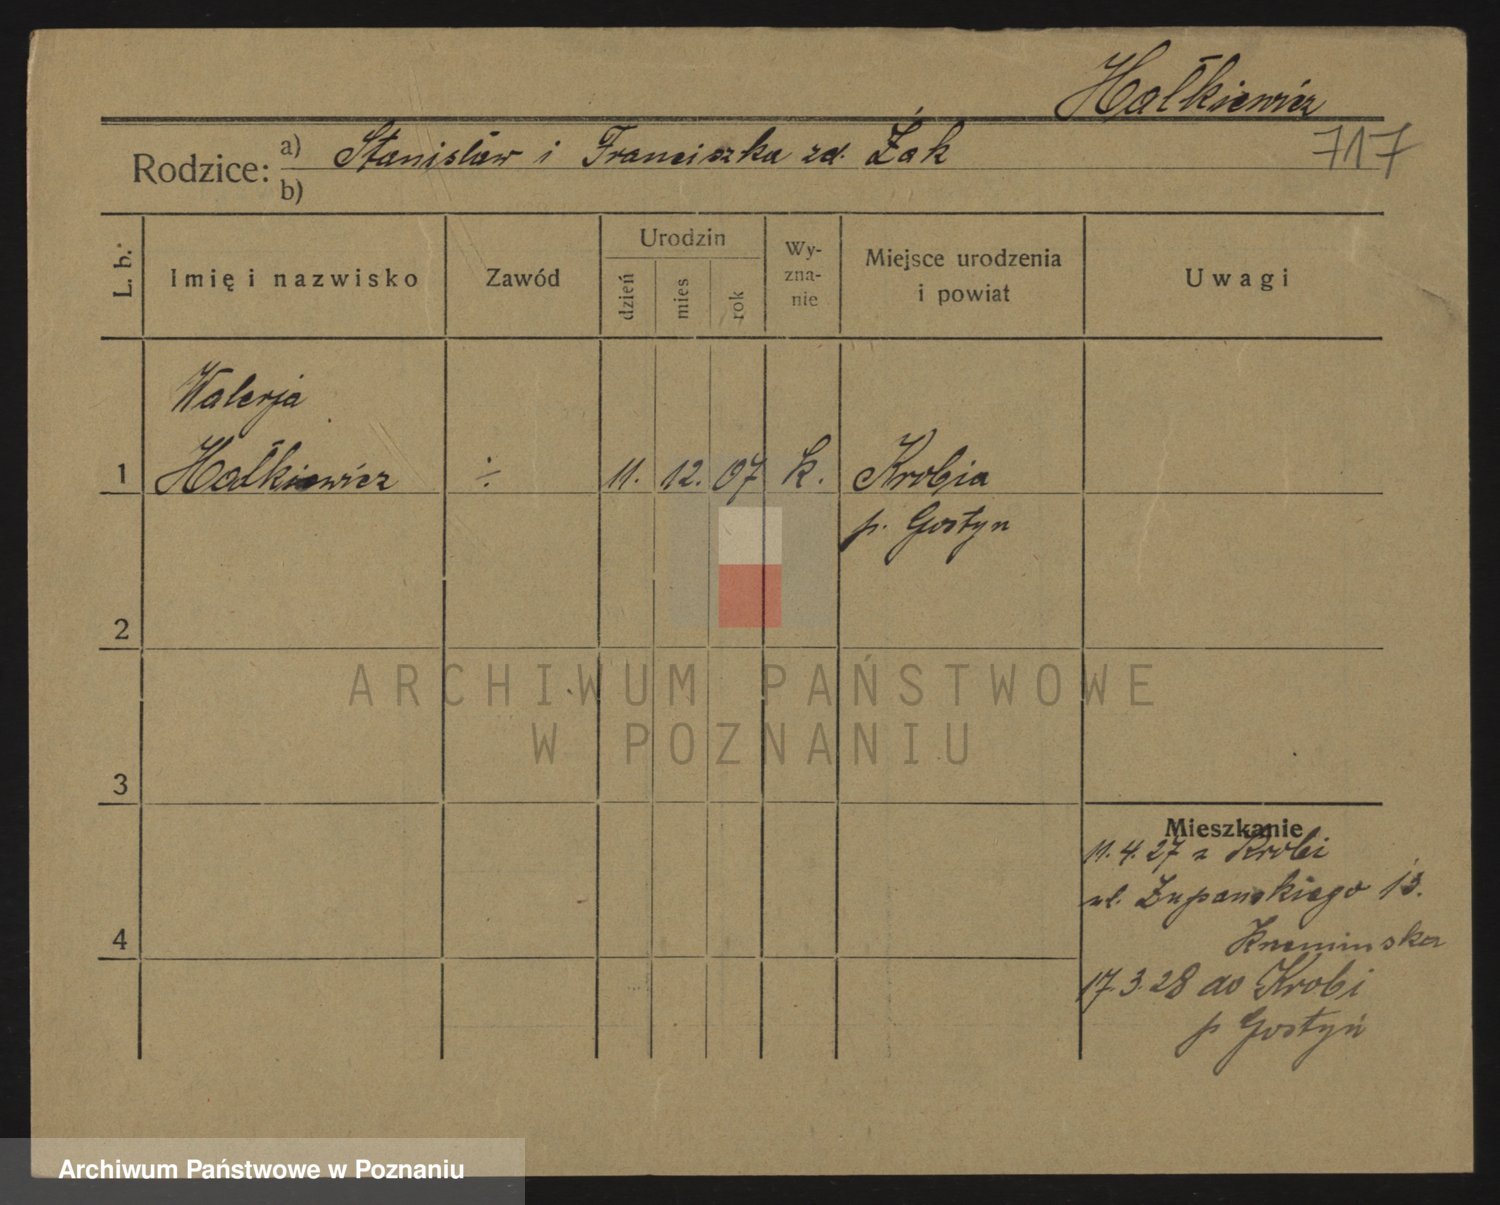 Hałkiewicz
717
Rodzice: a) Stanisław i Franciszka zd. Żak
b)
L. b.: Imię i nazwisko Zawód Urodzin dzień mies rok Wy-zna-nie Miejsce urodzenia i powiat Uwagi
Walerja
1 Hałkiewicz ÷ 11. 12. 07 k. Krobia
p. Gostyn
2
3
Mieszkanie
11.4.27 z Krobi
ul. Żupańskiego 13.
4
17.3.28 do Krobi
p Gostyń
ARCHIWUM PAŃSTWOWE
W POZNANIU
Archiwum Państwowe w Poznaniu